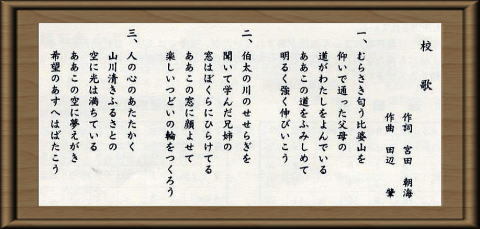 校歌
作詞 宮田 朝海
作曲 田辺 肇
一、むらさき匂う比婆山を
仰いで通った父母の
道がわたしをよんでいる
ああこの道をふみしめて
明るく強く伸びいこう
二、伯太の川のせせらぎを
聞いて学んだ兄姉の
窓はぼくらにひらけてる
ああこの窓に顔よせて
楽しいつどいの輪をつくろう
三、人の心のあたたかく
山川清きふるさとの
空に光は満ちている
ああこの空に夢えがき
希望のあすへはばたこう